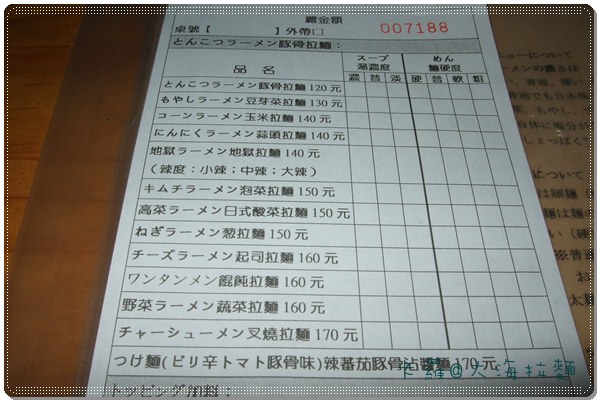 總金額
桌號【 】外帶□ 007188
とんこつラーメン豚骨拉麵：
品 名 スープ湯濃度 めん麵硬度
濃 普 淡 硬 普 軟 粗
とんこつラーメン豚骨拉麵 120 元
もやしラーメン豆芽菜拉麵 130 元
コーンラーメン玉米拉麵 140 元
にんにくラーメン蒜頭拉麵 140 元
地獄ラーメン地獄拉麵 140 元
（辣度：小辣；中辣；大辣）
キムチラーメン泡菜拉麵 150 元
高菜ラーメン日式酸菜拉麵 150 元
ねぎラーメン葱拉麵 150 元
チーズラーメン起司拉麵 160 元
ワンタンメン餛飩拉麵 160 元
野菜ラーメン蔬菜拉麵 160 元
チャーシューメン叉燒拉麵 170 元
つけ麵(ピリ辛トマト豚骨味)辣蕃茄豚骨沾醬麵 170 元
トッピング加料：
卡蘿@大海拉麵